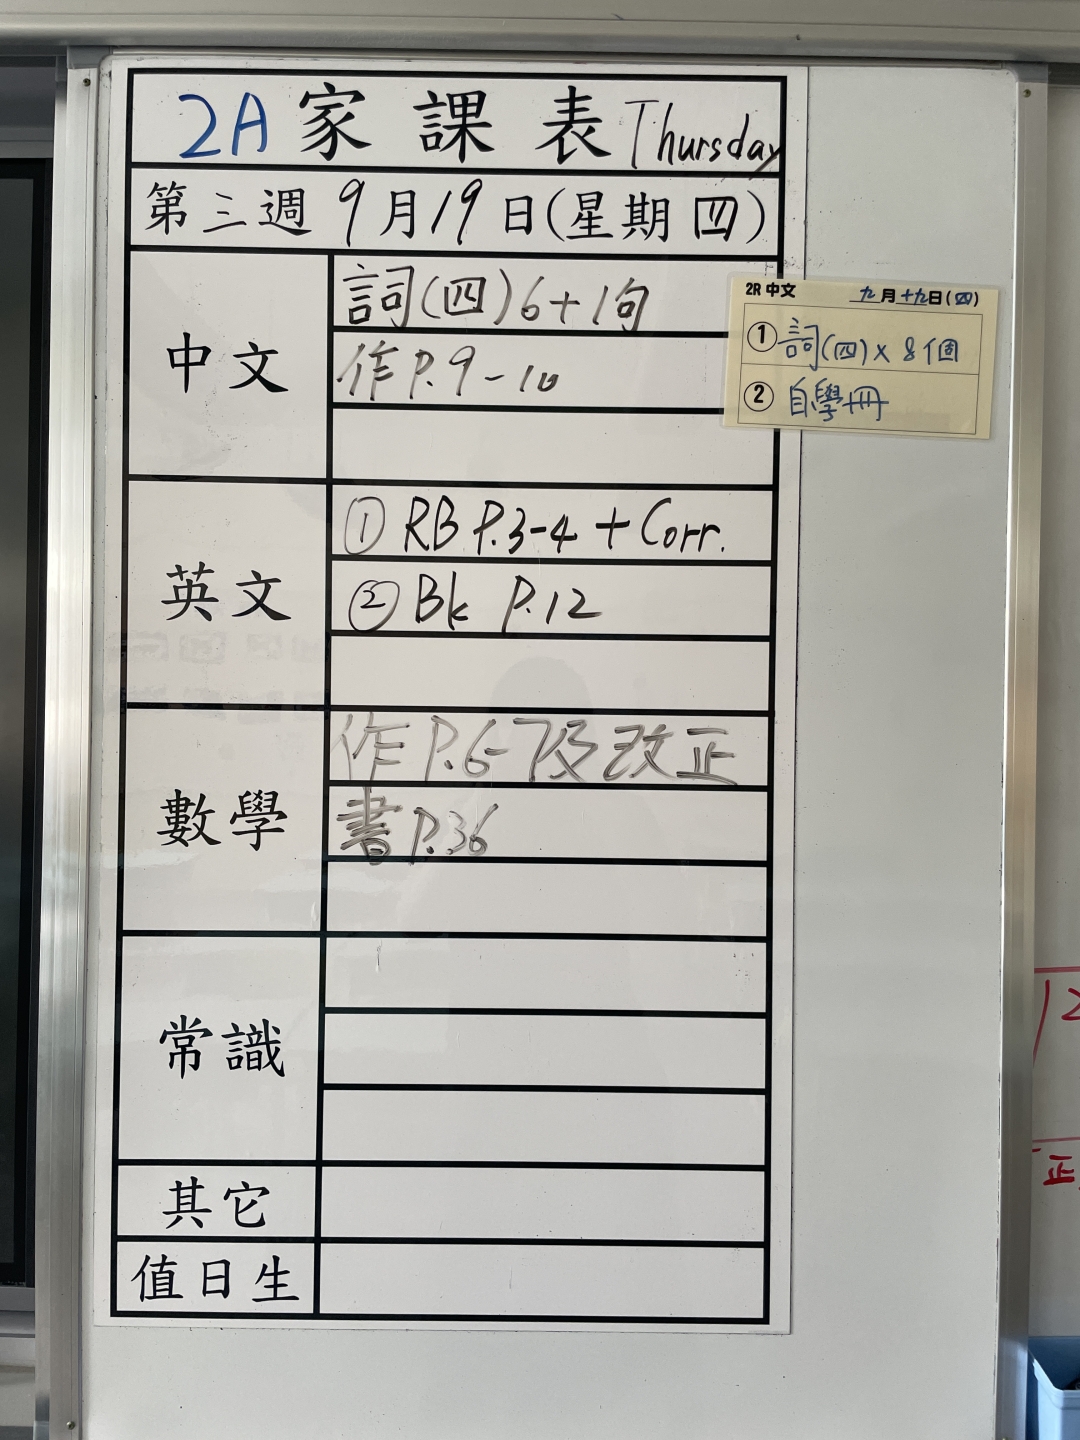 2A 家課表 Thursday
第三週 9月19日(星期四)
中文
詞(四)6+1句
作P.9-10
2R 中文 九月十九日(四)
① 詞(四)x 8個
② 自學冊
英文
① RB P.3-4 + Corr.
② Bk P.12
數學
作P.6-7及改正
書P.36
常識
其它
值日生
12
正